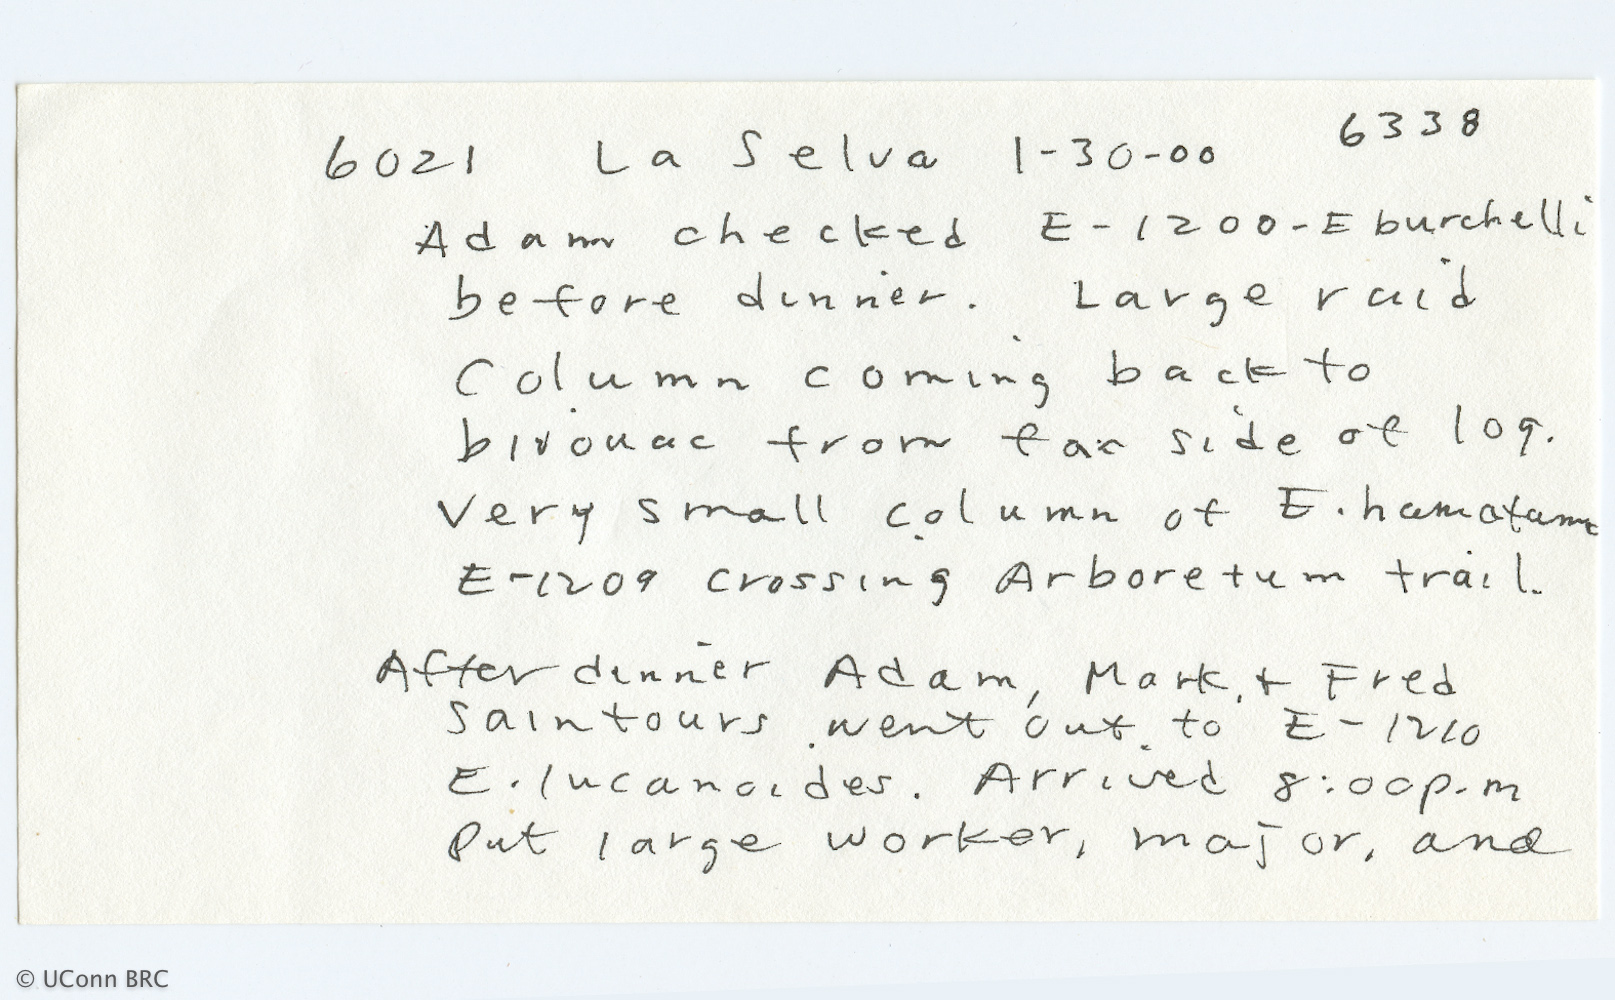 6338
6021 La Selva 1-30-00
Adam checked E-1200-E burchelli
before dinner. Large raid
Column coming back to
bivouac from far side of log.
Very small column of E. hamatum
E-1209 crossing Arboretum trail.
After dinner Adam, Mark, + Fred
Saintours went out to E-1210
E. lucanoides. Arrived 8:00p.m
Put large worker, major, and
© UConn BRC